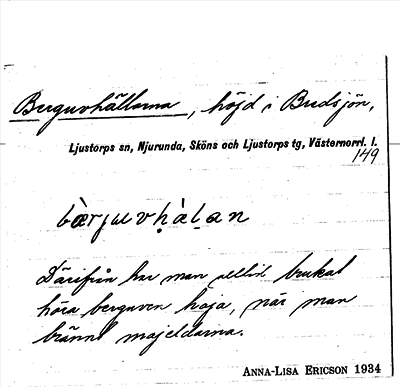 Berguvhällarna, höjd i Bredsjön,
Ljustorps sn, Njurunda, Sköns och Ljustorps tg, Västernorrl. l.
149
bærjuvḥàḷan
Därifrån har man alltid brukat
höra berguven hoja, när man
bränt majeldarna.
ANNA-LISA ERICSON 1934